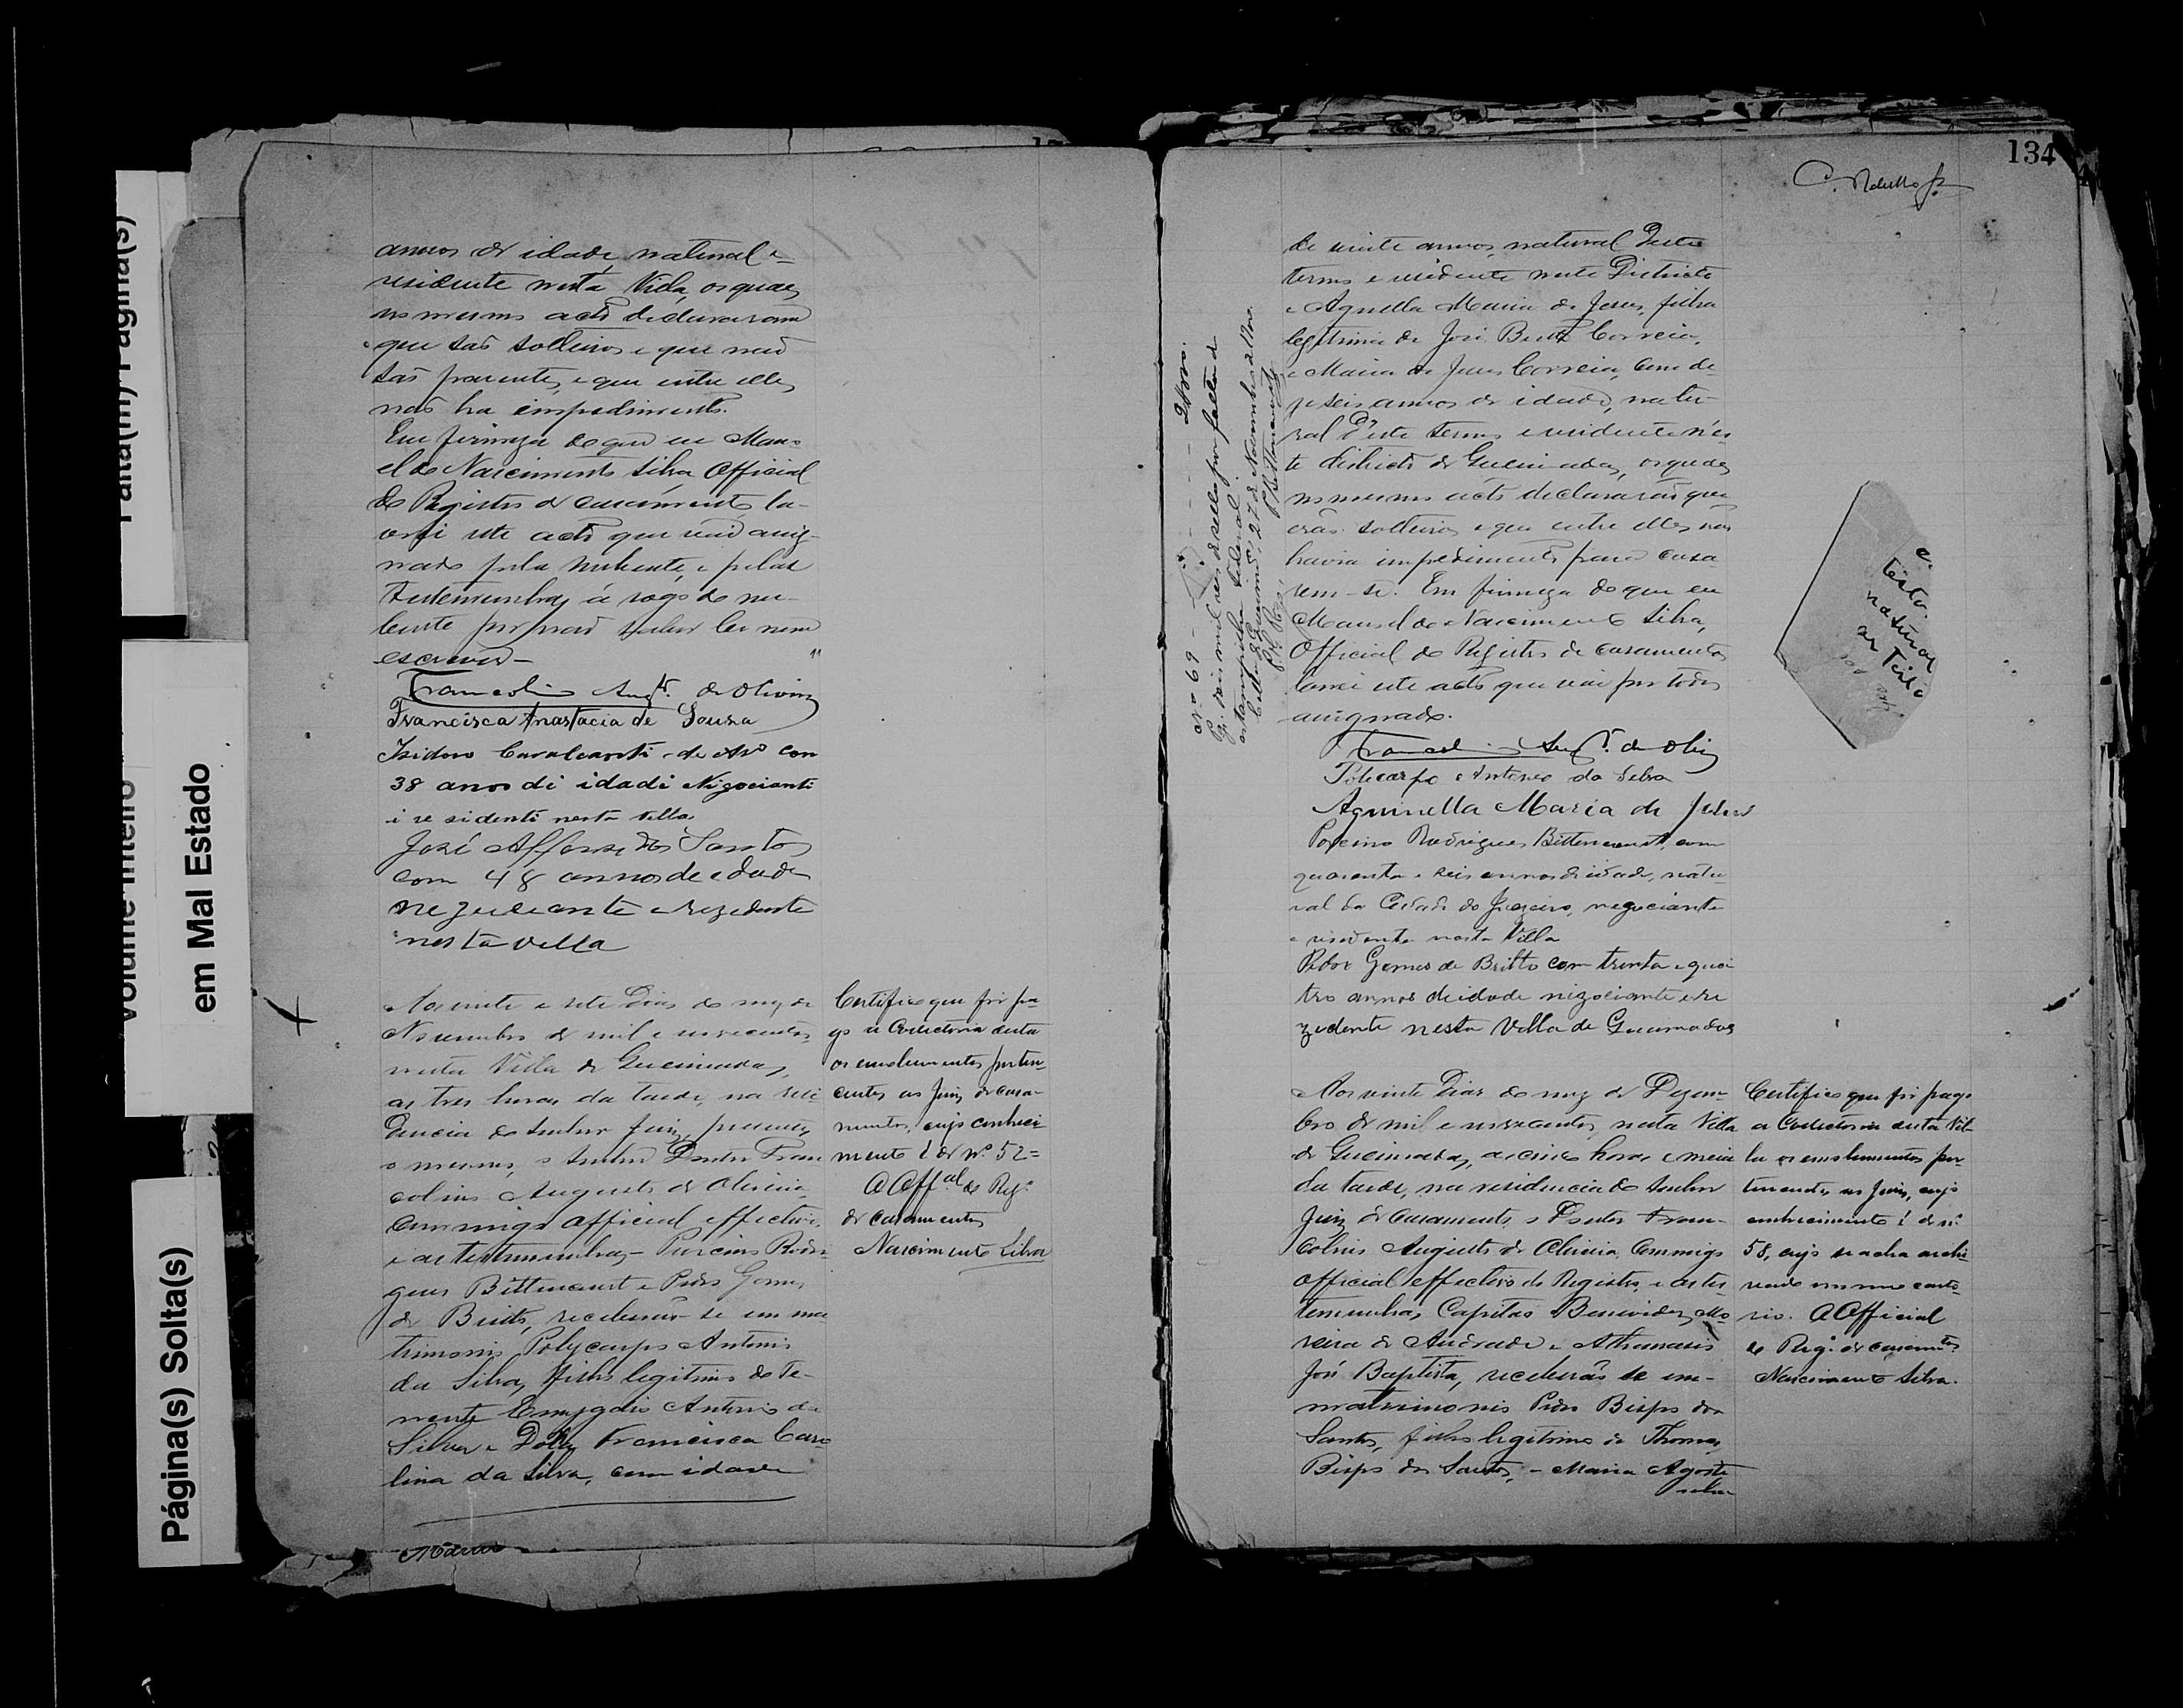 Falta(m) Página(s)
Volume Inteiro
em Mal Estado
Página(s) Solta(s)
annos de idade, natural e
residente nesta Villa, os quaes
no mesmo acto declararam
que são solteiros e que não
são parentes, e que entre elles
não ha impedimento.
Em firmeza do que eu Mano-
el do Nascimento Silva Official
do Registro de casamento la-
vrei este acto que vai assig-
nado pela nubente, e pelas
testemunhas á rogo do nu-
bente por não saber ler nem
escrever-
Francolino Augto. de Oliveira
Francisca Anastacia de Souza
Isidoro Cavalcanti de Aro con
38 anos di idadi Nigocianti
i residenti nesta villa
José Affonso dos Santos
com 48 annos de edade
neguciante e rezidente
nesta villa
Aos vinte e sete dias do mez de
Novembro de mil e novecentos
nesta Villa de Queimadas,
as tres horas da tarde, na resi-
dencia do senhor Juiz, presentes
o mesmo, o senhor Doutor Fran
colino Augusto de Oliveira,
commigo official effectivo,
e as testemunhas - Porcino Rodri
gues Bittencourt e Pedro Gomes
de Britto, receberão-se em ma
trimonio Polycarpo Antonio
da Silva, filho legitimo do Te-
nente Emygdio Antonio da
Silva e Dona Francisca Caro
lina da Silva, com idade
Certifico que foi pa
go a Collectoria desta
os emolumentos perten-
centes ao Juiz de casa-
mentos, cujo conheci-
mento é de No. 52=
O Offal. do Rego.
de casamentos
Nascimento Silva
134
de vinte annos, natural deste
termo e residente neste Districto
e Agnella Maria de Jesus, filha
legitima de José Britto Correia,
e Maria de Jesus Correia, com de-
zeseis annos de idade, natu-
ral d'este termo e residente n'es-
te districto de Queimadas, os quaes
no mesmo acto declararão que
erão solteiros e que entre elles não
havia impedimento para casa
rem-se. Em firmeza do que eu
Manoel do Nascimento Silva,
Official do Registro de casamentos
lavrei este acto que vai por todos
assignado.
Francolino Augto. de Oliva
Policarpo Antonio da Silva
Aguinella Maria de Jesus
Porcino Rodrigues Bittencourt, com
quarenta e seis annos de idade, natu-
ral da Cidade do Juazeiro, negociante
e residente nesta Villa
Pedro Gomes de Britto com trinta e qua
tro annos de idade nigociante e re
zidente nesta Villa de Queimadas
No 69 - - - - - 2$000.
Pg. dois mil reis de sello por falta de
estampilha federal.
Coll. de Queimadas, 27 de Novembro de 1900.
Bittencourt
o
testo.
natural
Aos vinte dias do mez de Dezem-
bro de mil e novecentos, nesta Villa
de Queimadas, as cinco horas e meia
da tarde, na residencia do senhor
Juiz de Casamentos o Doutor Fran-
colino Augusto de Oliveira, Commigo
official effectivo do Registro, e as tes-
temunhas, Capitão Benevides Mo
reira de Andrade e Athanasio
José Baptista, receberão se em-
matrimonio Pedro Bispo dos
Santos, filho legitimo de Thomas
Bispo dos Santos, - Maria Agosti
Certifico que foi pago
a Collectoria desta Vil-
la os emolumentos per-
tencentes ao Juiz, cujo
conhecimento é de no.
58, cujo se acha archi-
vado em meu carto-
rio. O Official
do Rego. de casamentos
Nascimento Silva.